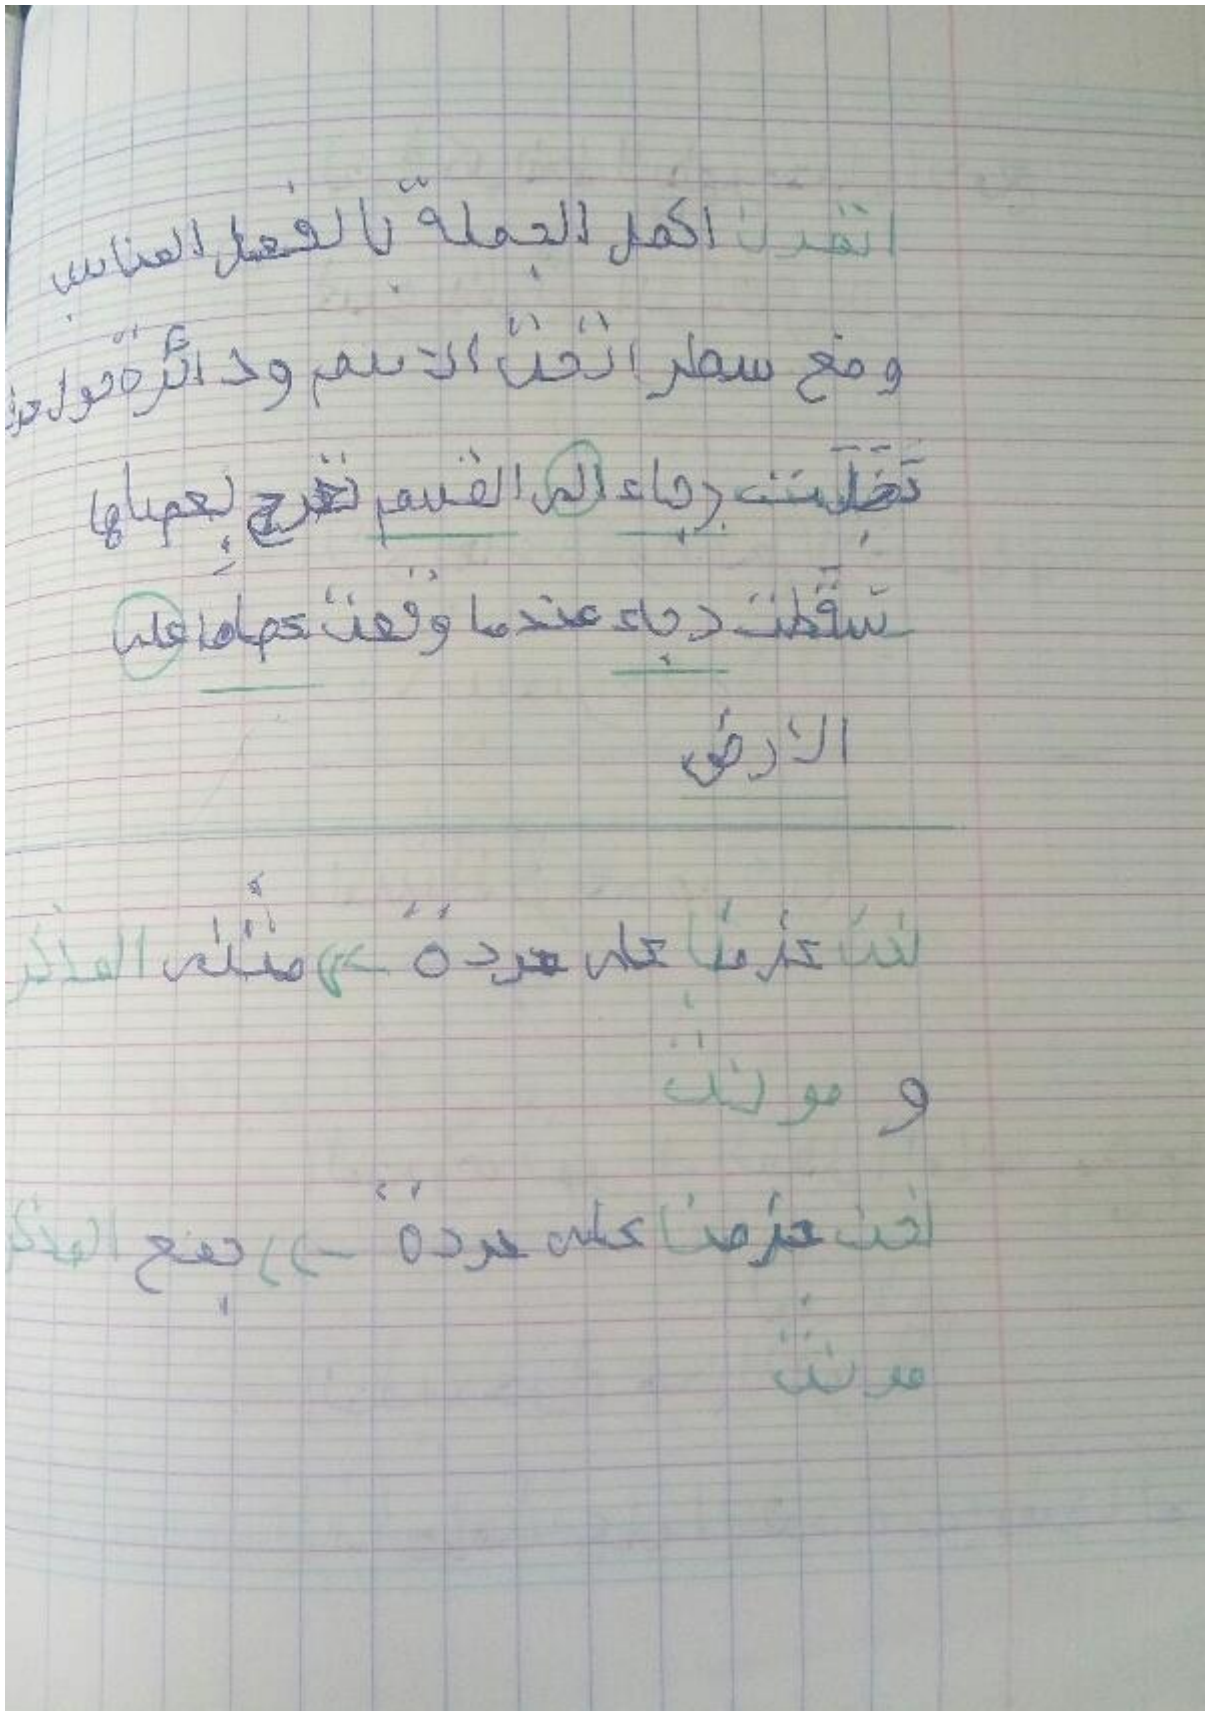 اتمرن اكمل الجملة بالفعل المناسب
وضع سطر اتحت الاسم ودائرة حول حرف
دخلت رجاء الى القسم تعرج بعصاها
سقطت رجاء عندما وقعت عصاها على
الارض
نحن عزمنا على عودة => مثنى المذكر
و مونث
نحن عزمنا على عودة => جمع المذكر
مونث